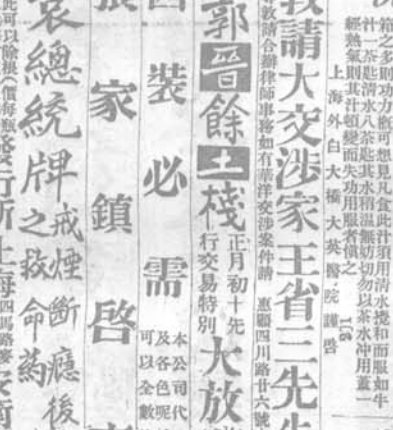 箱之多則功力厥可想見凡食此汁須用清水攪和而服如牛
汁一茶匙清水八茶匙其水稍溫無妨切勿以茶水冲用蓋一
經熱氣則其汁頓變而失功用服者慎之
上海外白大橋大英醫院謹啓
請大交涉家王省三先生
敦請合辦律師事務如有華洋交涉案件請 惠顧四川路廿六號
郭晉餘土棧
正月初十先
行交易特別
大放
裝必需
本公司代
及各色呢
可以全數
家鎮啓
袁總統牌
戒煙斷癮後
之救命藥
此可以除根(價每瓶
行所上海四馬路麥